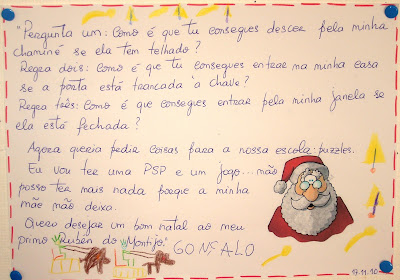 "Pergunta um: Como é que tu consegues descer pela minha
chaminé se ela tem telhado?
Regra dois: Como é que tu consegues entrar na minha casa
se a porta está trancada à chave?
Regra três: Como é que consegues entrar pela minha janela se
ela está fechada?
Agora queria pedir coisas para a nossa escola: puzzles.
Eu vou ter uma PSP e um jogo... não
posso ter mais nada porque a minha
mãe não deixa.
Quero desejar um bom natal ao meu
primo Rubén do Montijo."
GONÇALO
17.11.10